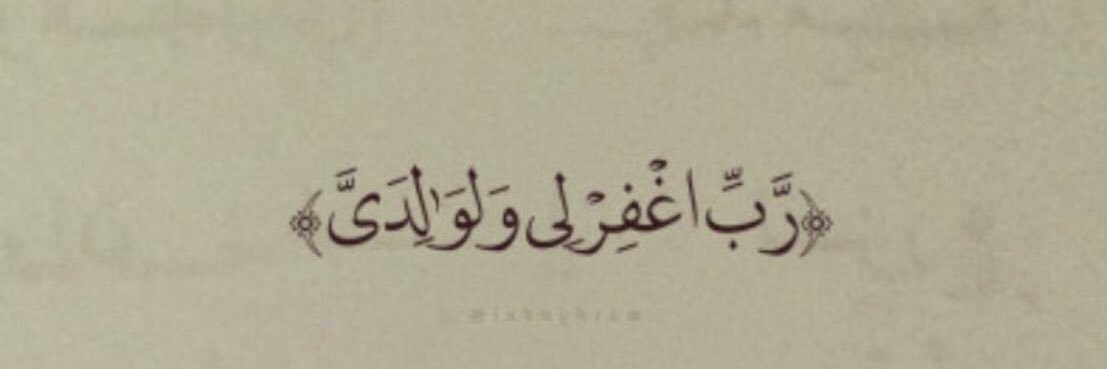 ﴿رَّبِّ اغْفِرْ لِى وَلِوَٰلِدَىَّ﴾